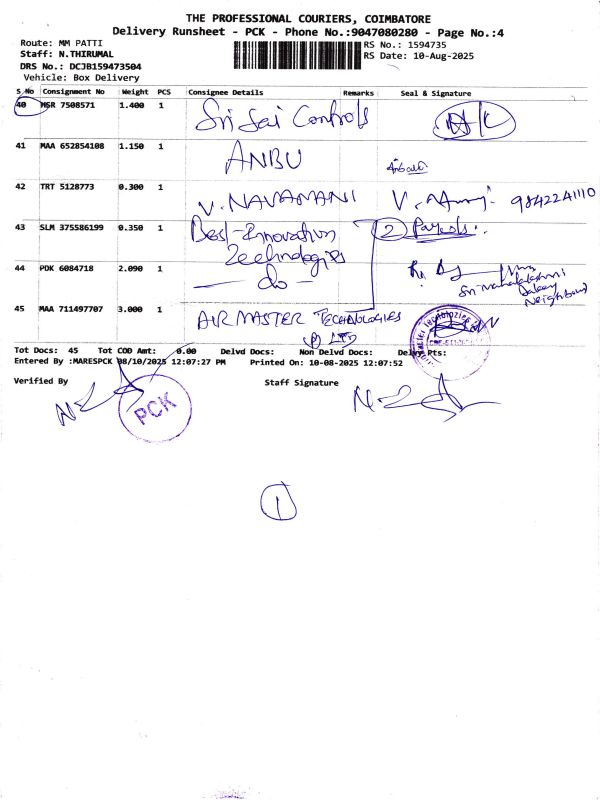 THE PROFESSIONAL COURIERS, COIMBATORE
Delivery Runsheet - PCK - Phone No.:9047080280 - Page No.:4
Route: MM PATTI
RS No.: 1594735
Staff: N.THIRUMAL
RS Date: 10-Aug-2025
DRS No.: DCJB159473504
Vehicle: Box Delivery
S No Consignment No Weight PCS Consignee Details Remarks Seal & Signature
40 MSR 7508571 1.400 1 Sri Sai Controls
41 MAA 652854108 1.150 1 ANBU
42 TRT 5128773 0.300 1 V. NAVAMANI 9842241110
43 SLM 375586199 0.350 1 Best-Innovation Technologies 2
44 PDK 6084718 2.090 1 — do — Sri Mahalakshmi Bakery Neighbour
45 MAA 711497707 3.000 1 AIRMASTER TECHNOLOGIES (P) LTD
Tot Docs: 45 Tot COD Amt: 0.00 Delvd Docs: Non Delvd Docs: Delvy Pts:
Entered By :MARESPCK 08/10/2025 12:07:27 PM Printed On: 10-08-2025 12:07:52
Verified By Staff Signature
PCK
1